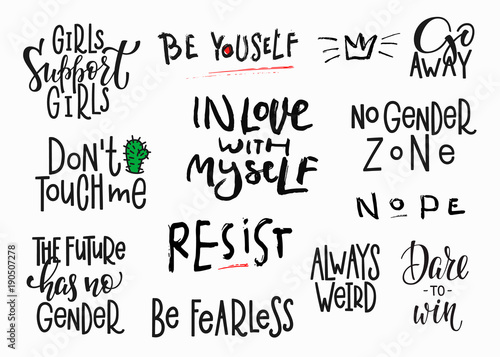 GIRLS
Support
GIRLS
BE YOUSELF
Go
AWAY
IN LOVE
WITH
MYSELF
NO GENDER
ZONE
DON'T
TOUCH me
NOPE
RESIST
THE FUTURE
has no
GENDER
ALWAYS
WEIRD
Dare
-TO-
win
Be FEARLESS
Adobe Stock | #190507278